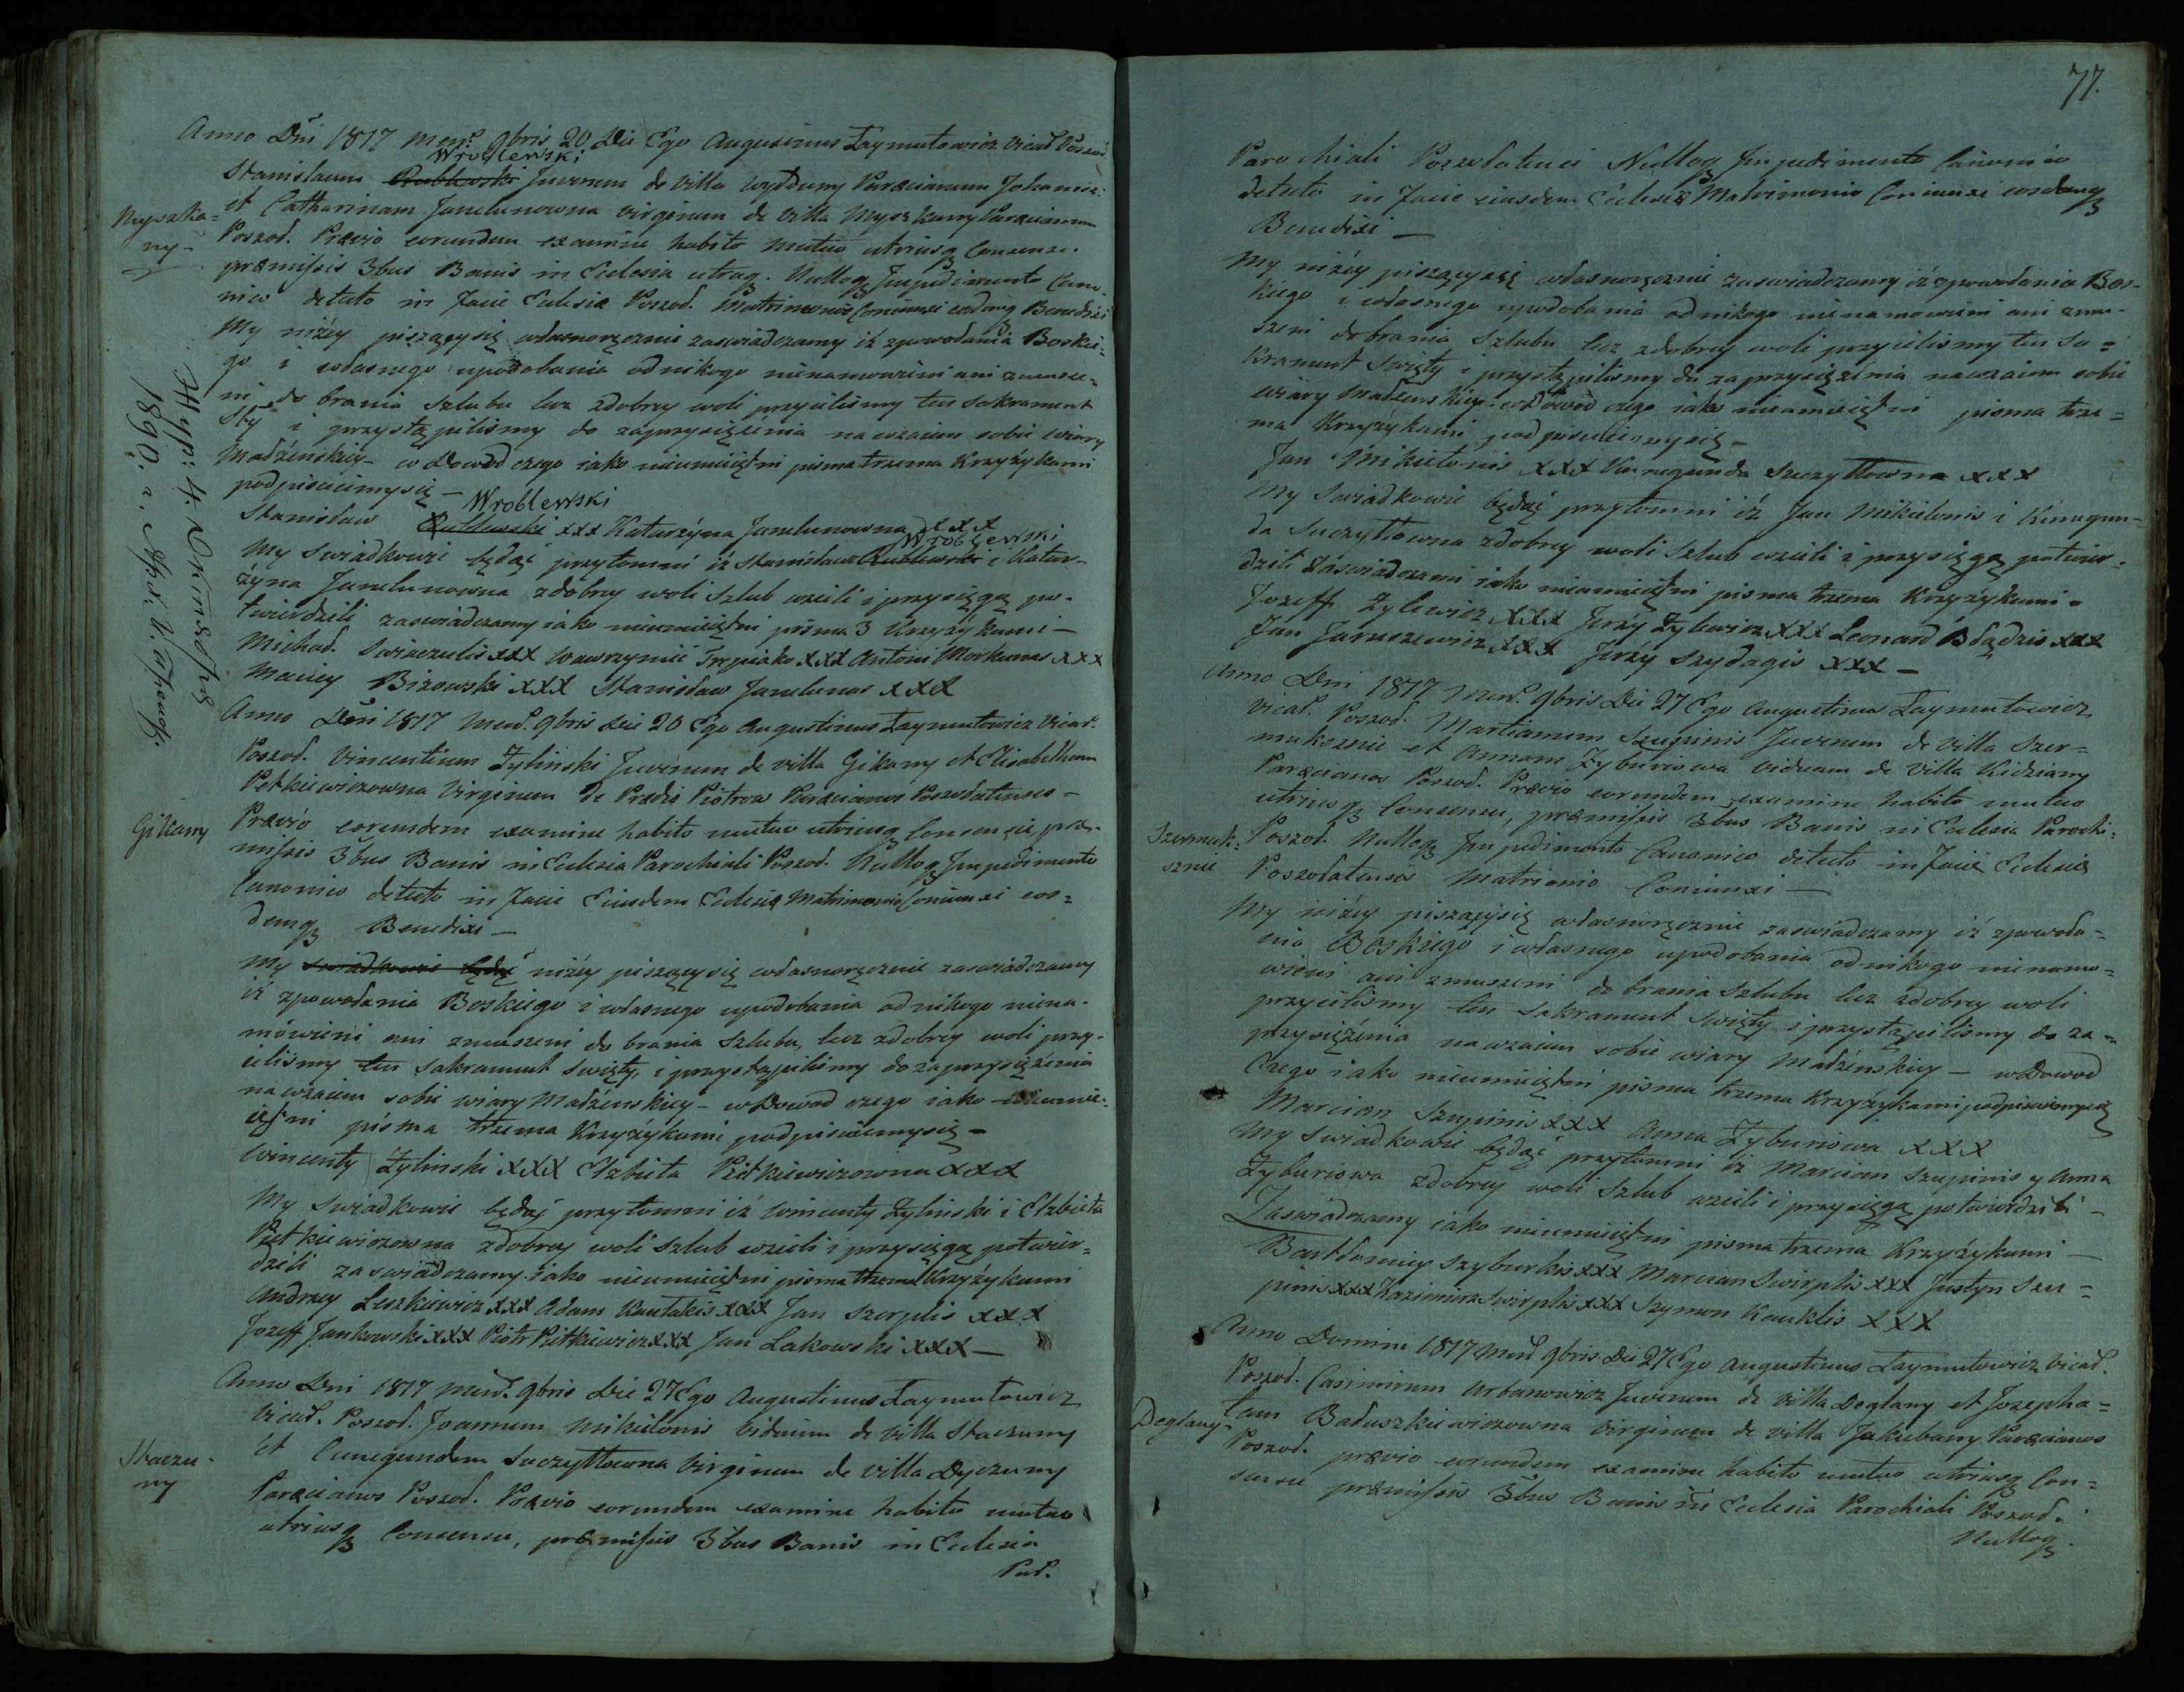 Anno Dni 1817 mens. 9bris 20 Die Ego Augustinus Zaymutowicz Vicar. Poszod.
Wroblewski
Stanislaum Rublewski Juvenem de Villa Wyddumy Paræcianum Johanis:
et Catharinam Janelunowna virginem de Villa Myszkany Paræcianam
Poszod. Prævio eorundem examine habito mutuo utriusq3 Consensu.
præmissis 3bus Banis in Eclesia utraq. Nulloq3 Impedimento Cano-
nico detecto in Facie Eclesiæ Poszod. Matrimonio Coniunxi eosdemq3 Benedixi
My niżey piszącysię własnoręcznie zaswiadczamy iż zpowodania Boskie=
go i własnego upodobania odnikogo nienamowieni ani zmusze=
ni do brania szlubu lecz zdobrey woli przyieliśmy ten Sakrament
Sty i przystąpiliśmy do zaprzysiężenia nawzaiem sobie wiary
Małżeńskiey – w Dowod czego iako nieumieiętni pisma trzema Krzyżykami
podpisuiemysię –
Wroblewski
Stanisław Rublewski xxx Katarzyna Janelunowna xxx
Wroblewski
My swiadkowie będąć przytomni iż Stanisław Rublewski i Katar-
żyna Janelunowna zdobrey woli Szlub wzieli i przysięgą po-
twierdzili zaswiadczamy iako nieumieiętni pisma 3 Krzyżykami –
Michał Swiaczulis xxx Wawrzyniec Trepiako xxx Antoni Morkunas xxx
Maciey Birowski xxx Stanisław Janelunas xxx
Anno Dni 1817 Mens. 9bris Die 20 Ego Augustinus Zaymutowicz Vicar.
Poszod. Vincentium Żyliński Juvenem de villa Gikany et Elisabetham
Petkiewiczowna Virginem de Prædio Piotrow Paræcianos Poszodatenses –
Prævio eorundem examine habito mutuo utriusq3 Consensu, præ-
missis 3bus Banis in Eclesia Parochiali Poszod. Nulloq3 Impedimento
Canonico detecto in Facie Eiusdem Eclesiæ Matrimonio Coniunxi eos=
demq3 Benedixi –
My swiadkowie będąć niżey piszącysię własnoręcznie zaswiadczamy
iż zpowodania Boskiego i własnego upodobania odnikogo niena-
mówieni ani zmuszeni do brania Szlubu, lecz zdobrey woli przy-
ieliśmy ten Sakrament Swięty, i przystąpiliśmy dozaprzysiężenia
nawzaiem sobie wiary Małżenskiey – wDowod czego iako nieumie:
iętni pisma trzema Krzyżykami podpisuiemysię –
Wincenty Żylinski xxx Elzbieta Petkiewiczowna xxx
My Swiadkowie będąć przytomni iż Wincenty Żylinski i Elzbieta
Petkiewiczowna zdobrey woli Szlub wzieli i przysięgą potwier=
dzili zaswiadczamy iako nieumieiętni pisma trzema Krzyżykami
Andrzey Leszkiewicz xxx Adam Kautakis xxx Jan Szerplis xxx
Jozeff Jankowski xxx Piotr Petkiewicz xxx Jan Lakowski xxx –
Anno Dni 1817 Mens. 9bris Die 27 Ego Augustinus Zaymutowicz
Vicar. Poszod. Joannem Mikielonis Viduum de Villa Staczuny
et Cunegundem Suczyttowna Virginem de villa Dyczuny
Paræcianos Poszod. Prævio eorundem examine habito mutuo
utriusq3 Consensu, præmissis 3bus Banis in Eclesia
Par.
Myszka=
ny –
Gikany
Staczu-
ny
1890. г. Апр.
77.
Parochiali Poszodatensi Nulloq3 Impedimento Canonico
detecto in Facie eiusdem Eclesiæ Matrimonio Coniunxi eosdemq3
Benedixi –
My niżey piszącysię własnoręcznie zaswiadczamy iż zpowodania Bos-
kiego i własnego upodobania odnikogo nienamowieni ani zmu-
szeni dobrania Szlubu lecz zdobrey woli przyieliśmy ten Sa=
krament Swięty i przystąpiliśmy do zaprzysiężenia nawzaiem sobie
wiary Małżenskiey – wDowod czego iako nieumieiętni pisma trze=
ma Krzyżykami podpisuiemysię –
Jan Mikielonis xxx Kunegunda Suczyttowna xxx
My Swiadkowie będąć przytomni iż Jan Mikielonis i Kunegun-
da Suczyttowna zdobrey woli Szlub wzieli i przysięgą potwier-
dzili Zaswiadczami iako nieumieiętni pisma trzema Krzyżykami –
Jozeff Żylewicz xxx Jerży Żylewicz xxx Leonard Błądzis xxx
Jan Jaruszewicz xxx Jerży Szydagis xxx –
Anno Dni 1817 Mens. 9bris Die 27 Ego Augustinus Zaymutowicz
Vicar. Poszod. Martianum Szupinis Juvenem de villa Szer=
muksznie et Annam Żyburiowa viduam de Villa Kidziany
Paræcianos Poszod. Prævio eorundem examine habito mutuo
utriusq3 Consensu, præmissis 3bus Banis in Eclesia Parochi:
Poszod. Nulloq3 Impedimento Canonico detecto in Facie Eclesiæ
Poszodatensis Matrionio Coniunxi –
My niżey piszącysię własnoręcznie zaswiadczamy iż zpowoda=
nia Boskiego i własnego upodobania odnikogo nienamo=
wieni ani zmuszeni do brania Szlubu lecz zdobrey woli
przyieliśmy ten Sakrament Swięty i przystąpiliśmy do za=
przysiężenia nawzaiem sobie wiary Małżeńskiey – wDowod
czego iako nieumieiętni pisma trzema Krzyżykami podpisuiemysię
Marcian Szupinis xxx Anna Żyburiowa xxx
My swiadkowie będąć przytomni iż Marcian Szupinis y Anna
Żyburiowa zdobrey woli Szlub wzieli i przysięgą potwierdzili –
Zaswiadczamy iako nieumieiętni pisma trzema Krzyżykami –
Bartłomiey Szyburkis xxx Marcian Swirplis xxx Justyn Szu=
pinis xxx Kazimierz Swirplis xxx Szymon Kauklis xxx
Anno Domini 1817 Mens. 9bris Die 27 Ego Augustinus Zaymutowicz Vicar.
Poszod. Casimirum Urbanowicz Juvenem de villa Deglany et Josepha=
tam Bałuszkiewiczowna Virginem de villa Jakubany Paræcianos
Poszod. prævio eorundem examine habito mutuo utriusq3 Con=
sensu præmissis 3bus Banis in Eclesia Parochiali Poszod.
Nulloq3
Szermuk=
sznie
Deglany